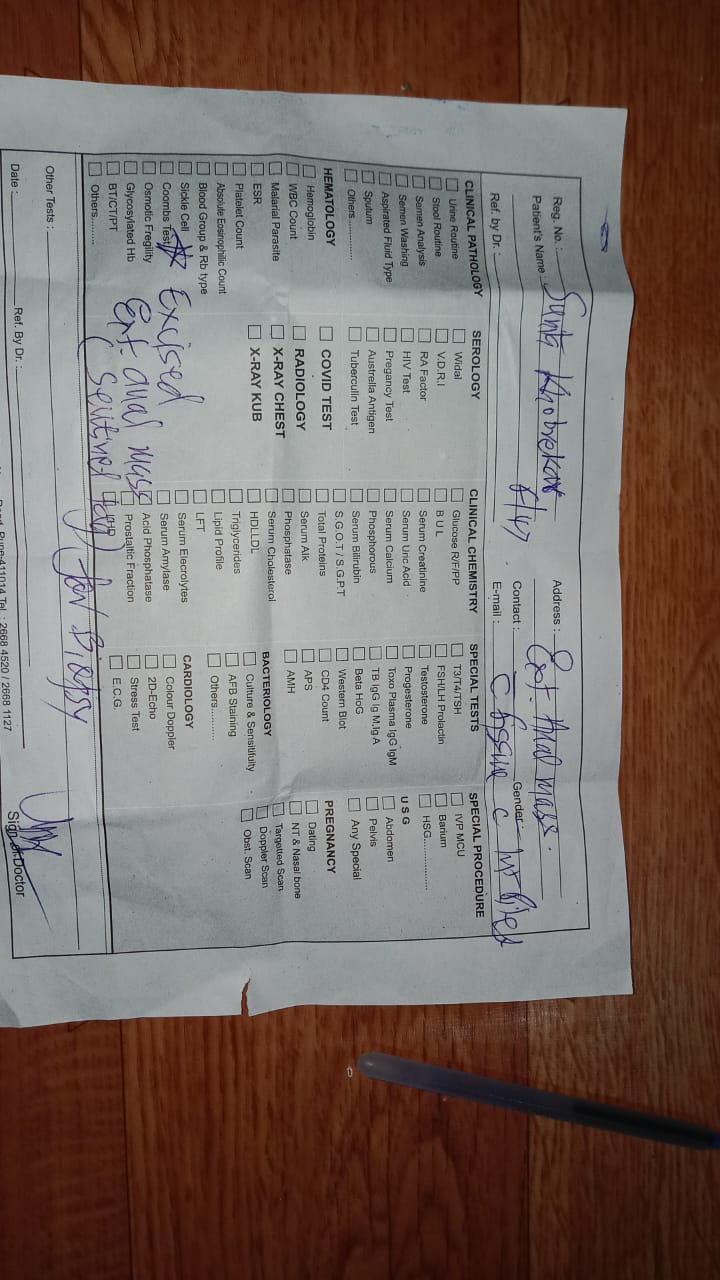 Reg. No. :
Patient's Name :
F/47
Ref. by Dr. :
Address : Ext. Anal mass.
Contact : Gender :
E-mail : C fissure C Int Piles
CLINICAL PATHOLOGY
Urine Routine
Stool Routine
Semen Analysis
Semen Washing
Aspirated Fluid Type
Sputum
Others..............
HEMATOLOGY
Hemoglobin
WBC Count
Malarial Parasite
ESR
Platelet Count
Absolute Eosinophilic Count
Blood Group & Rb type
Sickle Cell
Coombs Test
Osmotic Fregility
Glycosylated Hb
BT/CT/PT
Others.........
SEROLOGY
Widal
V.D.R.I
RA Factor
HIV Test
Pregancy Test
Austrella Antigen
Tuberculin Test
COVID TEST
RADIOLOGY
X-RAY CHEST
X-RAY KUB
CLINICAL CHEMISTRY
Glucose R/F/PP
B U L
Serum Creatinine
Serum Uric Acid
Serum Calcium
Phosphorous
Serum Bilirubin
S.G.O.T / S.G.P.T
Total Proteins
Serum Alk
Phosphatase
Serum Cholesterol
HDLLDL
Triglycerides
Lipid Profile
LFT
Serum Elecrolytes
Serum Amylase
Acid Phosphatase
Prostaltic Fraction
SPECIAL TESTS
T3/T4/TSH
FSH/LH Prolactin
Testosterone
Progesterone
Toxo Plasma IgG IgM
TB IgG Ig M,Ig A
Beta HoG
Western Blot
CD4 Count
APS
AMH
BACTERIOLOGY
Culture & Sensitifuity
AFB Staining
Others..........
CARDIOLOGY
Colour Doppler
2D-Echo
Stress Test
E.C.G.
SPECIAL PROCEDURE
IVP MCU
Barium
HSG................
U S G
Abdomen
Pelvis
Any Special
PREGNANCY
Dating
NT & Nasal bone
Targetted Scan
Doppler Scan
Obst. Scan
Excised
Ext. anal mass
(Sentinel tag) for Biopsy
Other Tests :
Sign of Doctor
Date : Ref. By Dr. :
Road, Pune-411014 Tel. : 2668 4520 / 2668 1127